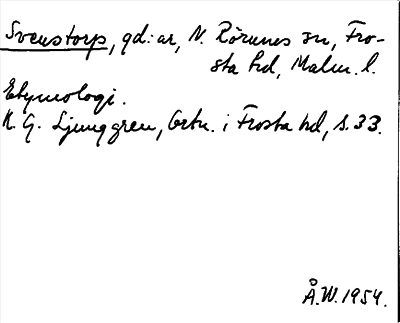 Svenstorp, gd:ar, N. Rörums sn, Fro-
sta hd, Malm. l.
Etymologi.
K. G. Ljunggren, Ortn. i Frosta hd, s. 33.
Å.W. 1954.